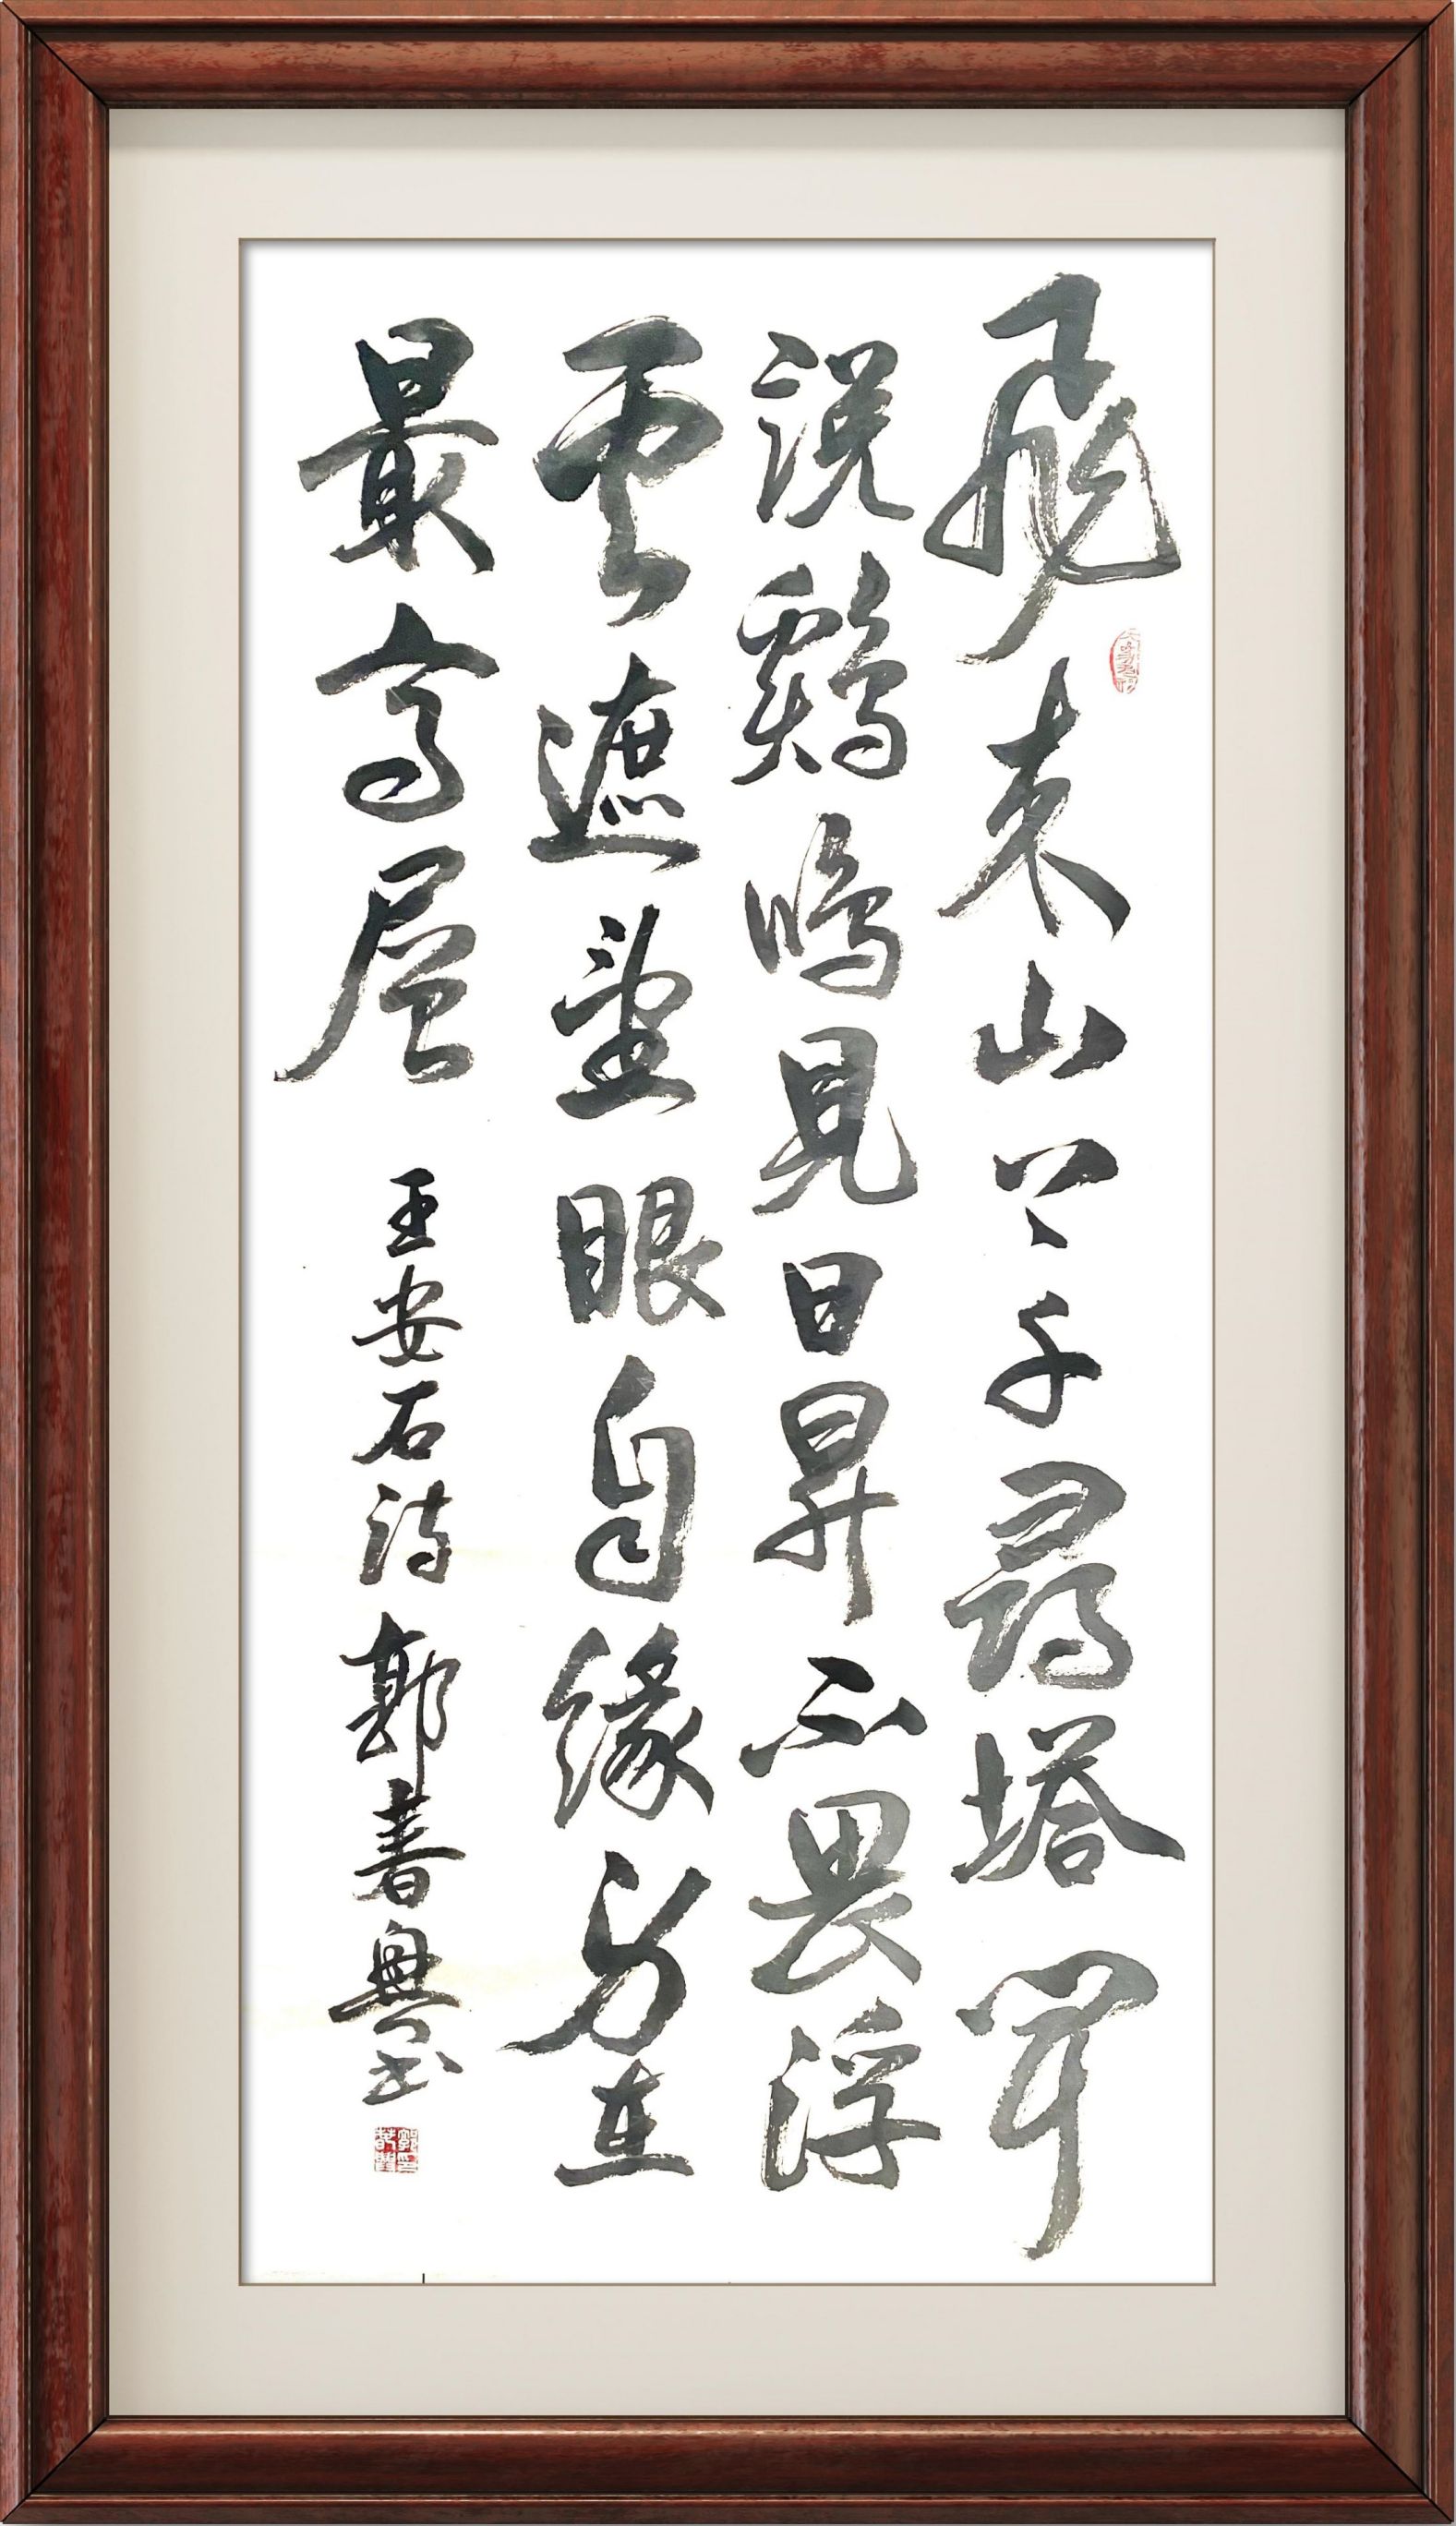 飛來山上千尋塔聞
說鷄鳴見日昇不畏浮
雲遮望眼自緣身在
最高層 王安石詩 郭春興书